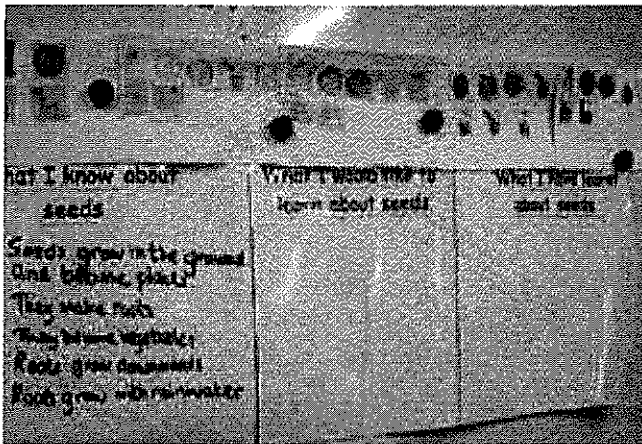 hat I know about
seeds
Seeds grow in the ground
and become plants
They make roots
They become vegetables
Roots grow downwards
Roots grow with rainwater
What I would like to
learn about seeds
What I have learnt
about seeds